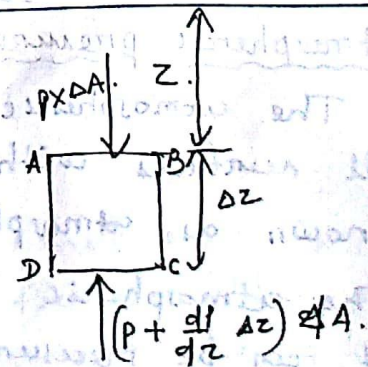 p×ΔA.
Z.
A B
ΔZ
D C
(p + dp/dz Δz) ΔA.